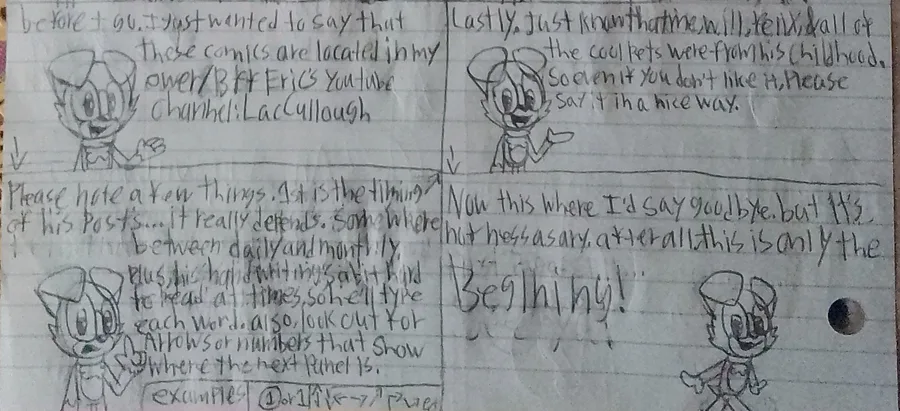 before I go. I just wanted to say that
these comics are located in my
owner/BFF Eric's YouTube
channel: LacCullough
Please note a few things. 1st is the timing
of his Posts... it really depends. somewhere
between daily and monthly.
plus, his handwritings a bit hard
to read at times, so he'll type
each word. also, look out for
Arrows or numbers that show
where the next Panel is.
examples ① or 1
Lastly. Just know that me, will, & all of
the cool pets were from his childhood.
So even if you don't like it, Please
say it in a nice way.
Now this where I'd say goodbye. but it's
not nessasary. after all, this is only the
Beginning!